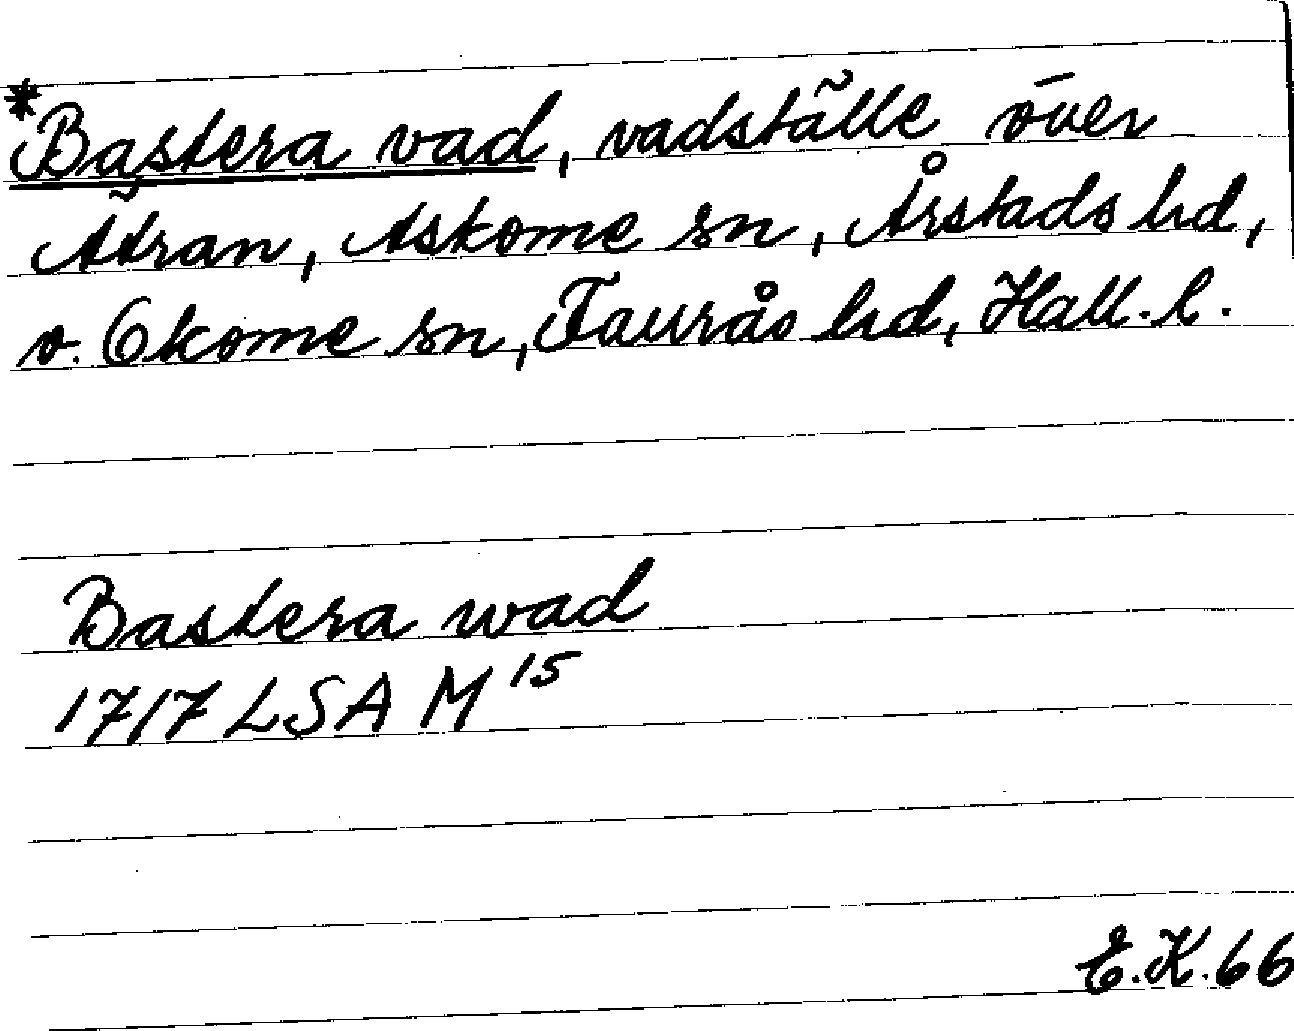 *Bastera vad, vadställe över
Ätran, Askome sn, Årstads hd,
o. Okome sn, Faurås hd, Hall. l.
Bastera wad
1717 LSA M 15
E.K. 66